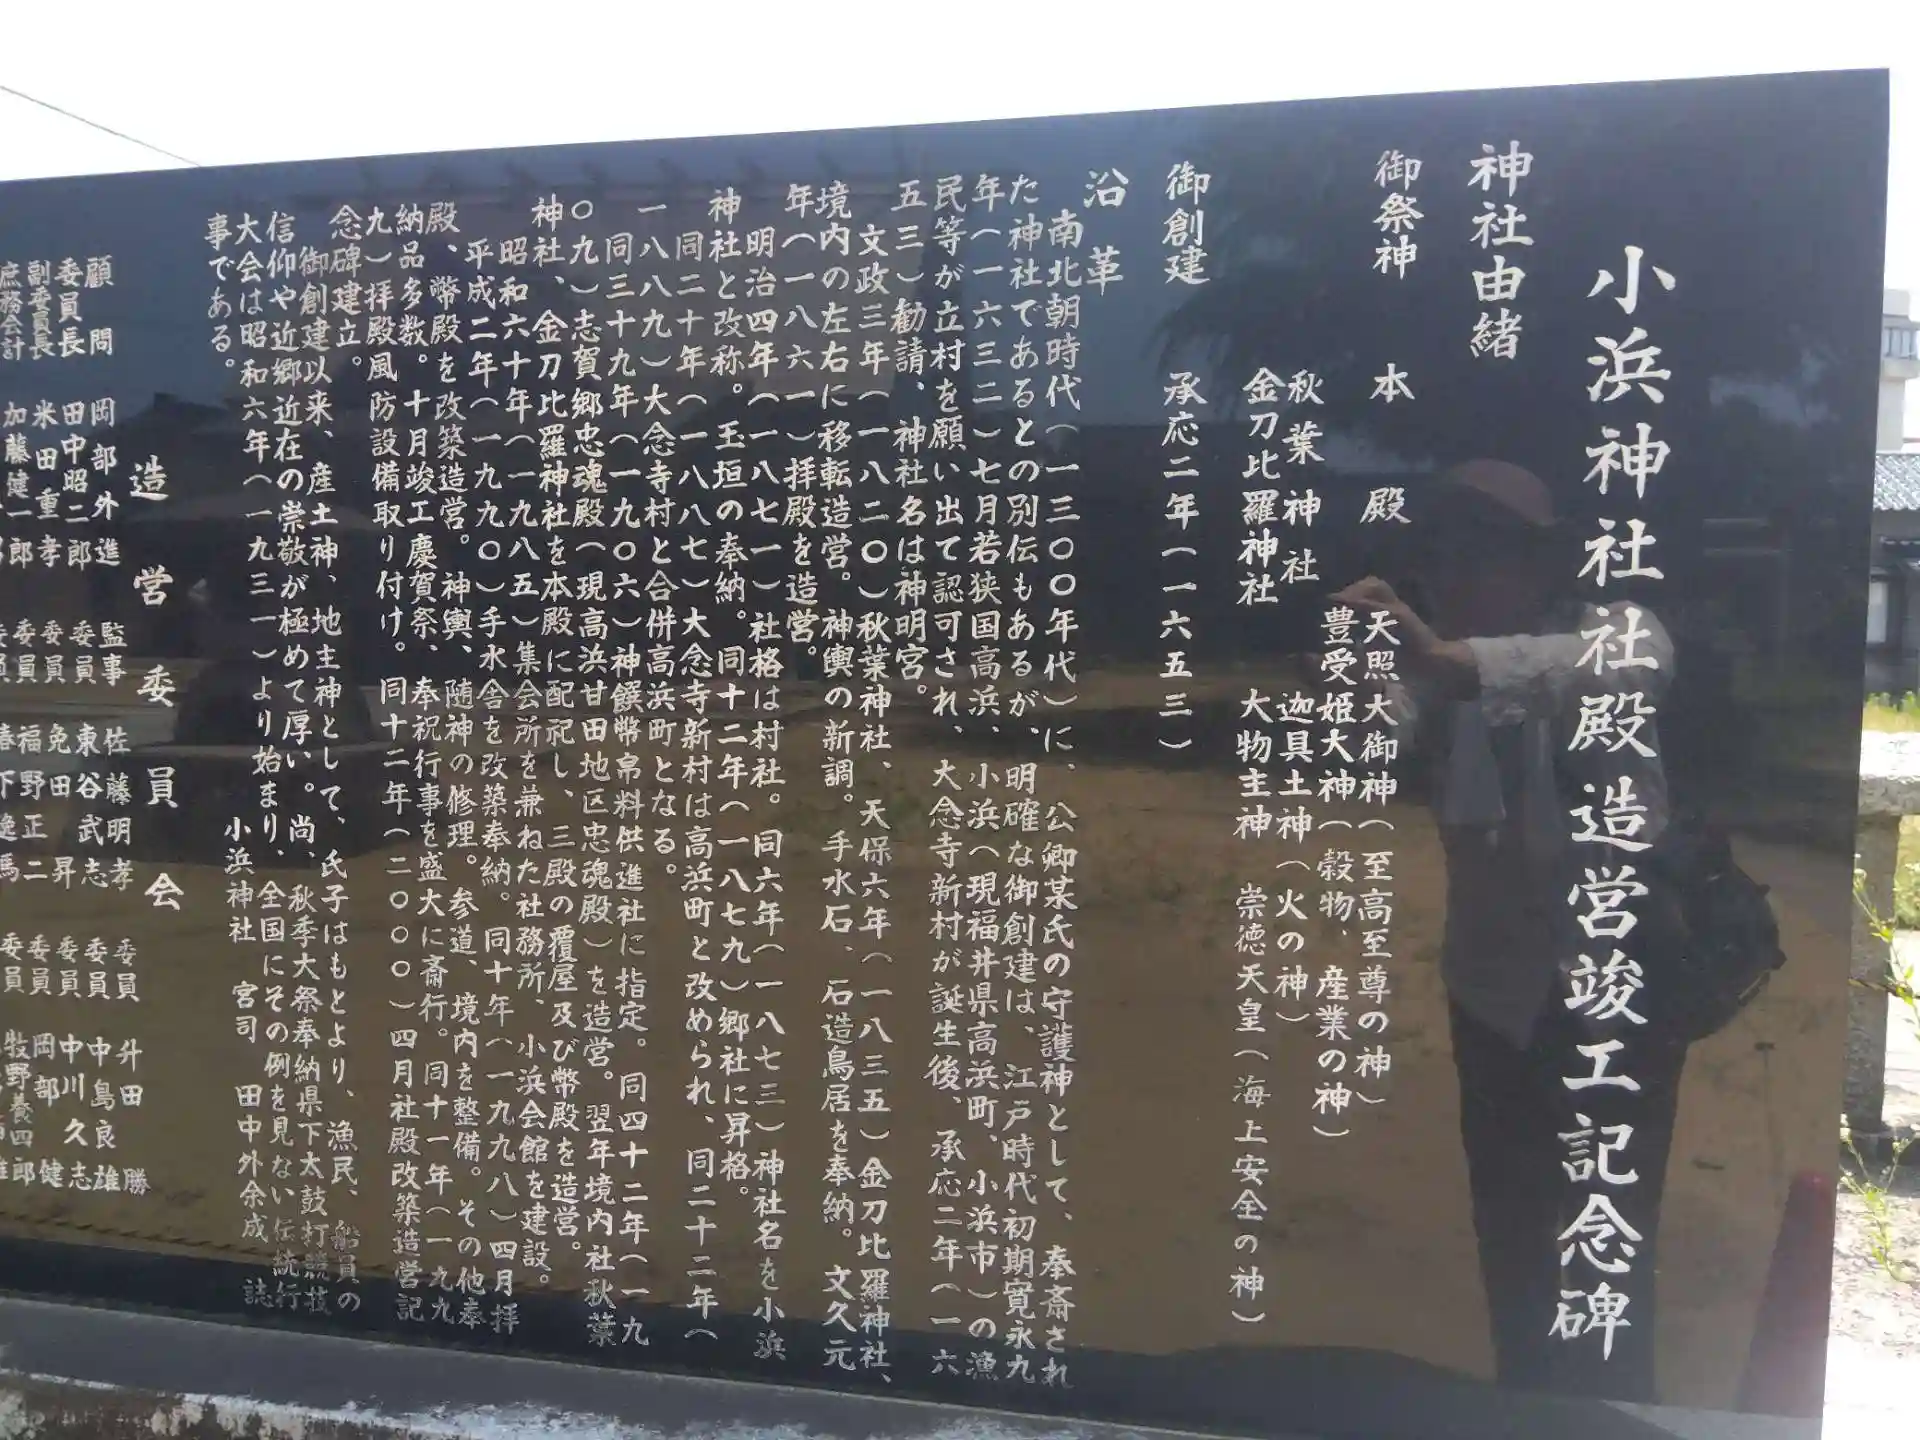 小浜神社社殿造営竣工記念碑
神社由緒
御祭神　本殿　天照大御神（至高至尊の神）
豊受姫大神（穀物、産業の神）
秋葉神社　迦具土神（火の神）
金刀比羅神社　大物主神　崇徳天皇（海上安全の神）
御創建　承応二年（一六五三）
沿革
南北朝時代（一三〇〇年代）に、公卿某氏の守護神として、奉斎され
た神社であるとの別伝もあるが、明確な御創建は、江戸時代初期寛永九
年（一六三二）七月若狭国高浜、小浜（現福井県高浜町、小浜市）の漁
民等が立村を願い出て認可され、大念寺新村が誕生後、承応二年（一六
五三）勧請、神社名は神明宮。
文政三年（一八二〇）秋葉神社、天保六年（一八三五）金刀比羅神社、
境内の左右に移転造営。神輿の新調。手水石、石造鳥居を奉納。文久元
年（一八六一）拝殿を造営。
明治四年（一八七一）社格は村社。同六年（一八七三）神社名を小浜
神社と改称。玉垣の奉納。同十二年（一八七九）郷社に昇格。
同二十年（一八八七）大念寺新村は高浜町と改められ、同二十二年（
一八八九）大念寺村と合併高浜町となる。
同三十九年（一九〇六）神饌幣帛料供進社に指定。同四十二年（一九
〇九）志賀郷忠魂殿（現高浜甘田地区忠魂殿）を造営。翌年境内社秋葉
神社、金刀比羅神社を本殿に配祀し、三殿の覆屋及び幣殿を造営。
昭和六十年（一九八五）集会所を兼ねた社務所、小浜会館を建設。
平成二年（一九九〇）手水舎を改築奉納。同十年（一九九八）四月拝
殿、幣殿を改築造営。神輿、随神の修理。参道、境内を整備。その他奉
納品多数。十月竣工慶賀祭、奉祝行事を盛大に斎行。同十一年（一九九
九）拝殿風防設備取り付け。同十二年（二〇〇〇）四月社殿改築造営記
念碑建立。
御創建以来、産土神、地主神として、氏子はもとより、漁民、船員の
信仰や近郷近在の崇敬が極めて厚い。尚、秋季大祭奉納県下太鼓打競技
大会は昭和六年（一九三一）より始まり、全国にその例を見ない伝統行
事である。
小浜神社　宮司　田中外余成　誌
造営委員会
顧問　岡部外進　監事　佐藤明孝　委員　升田勝
委員長　田中昭二郎　委員　東谷武志　委員　中島良雄
副委員長　米田重孝　委員　免田昇　委員　中川久志
庶務会計　加藤健一郎　委員　福野正二　委員　岡部健
委員　牧野養四郎